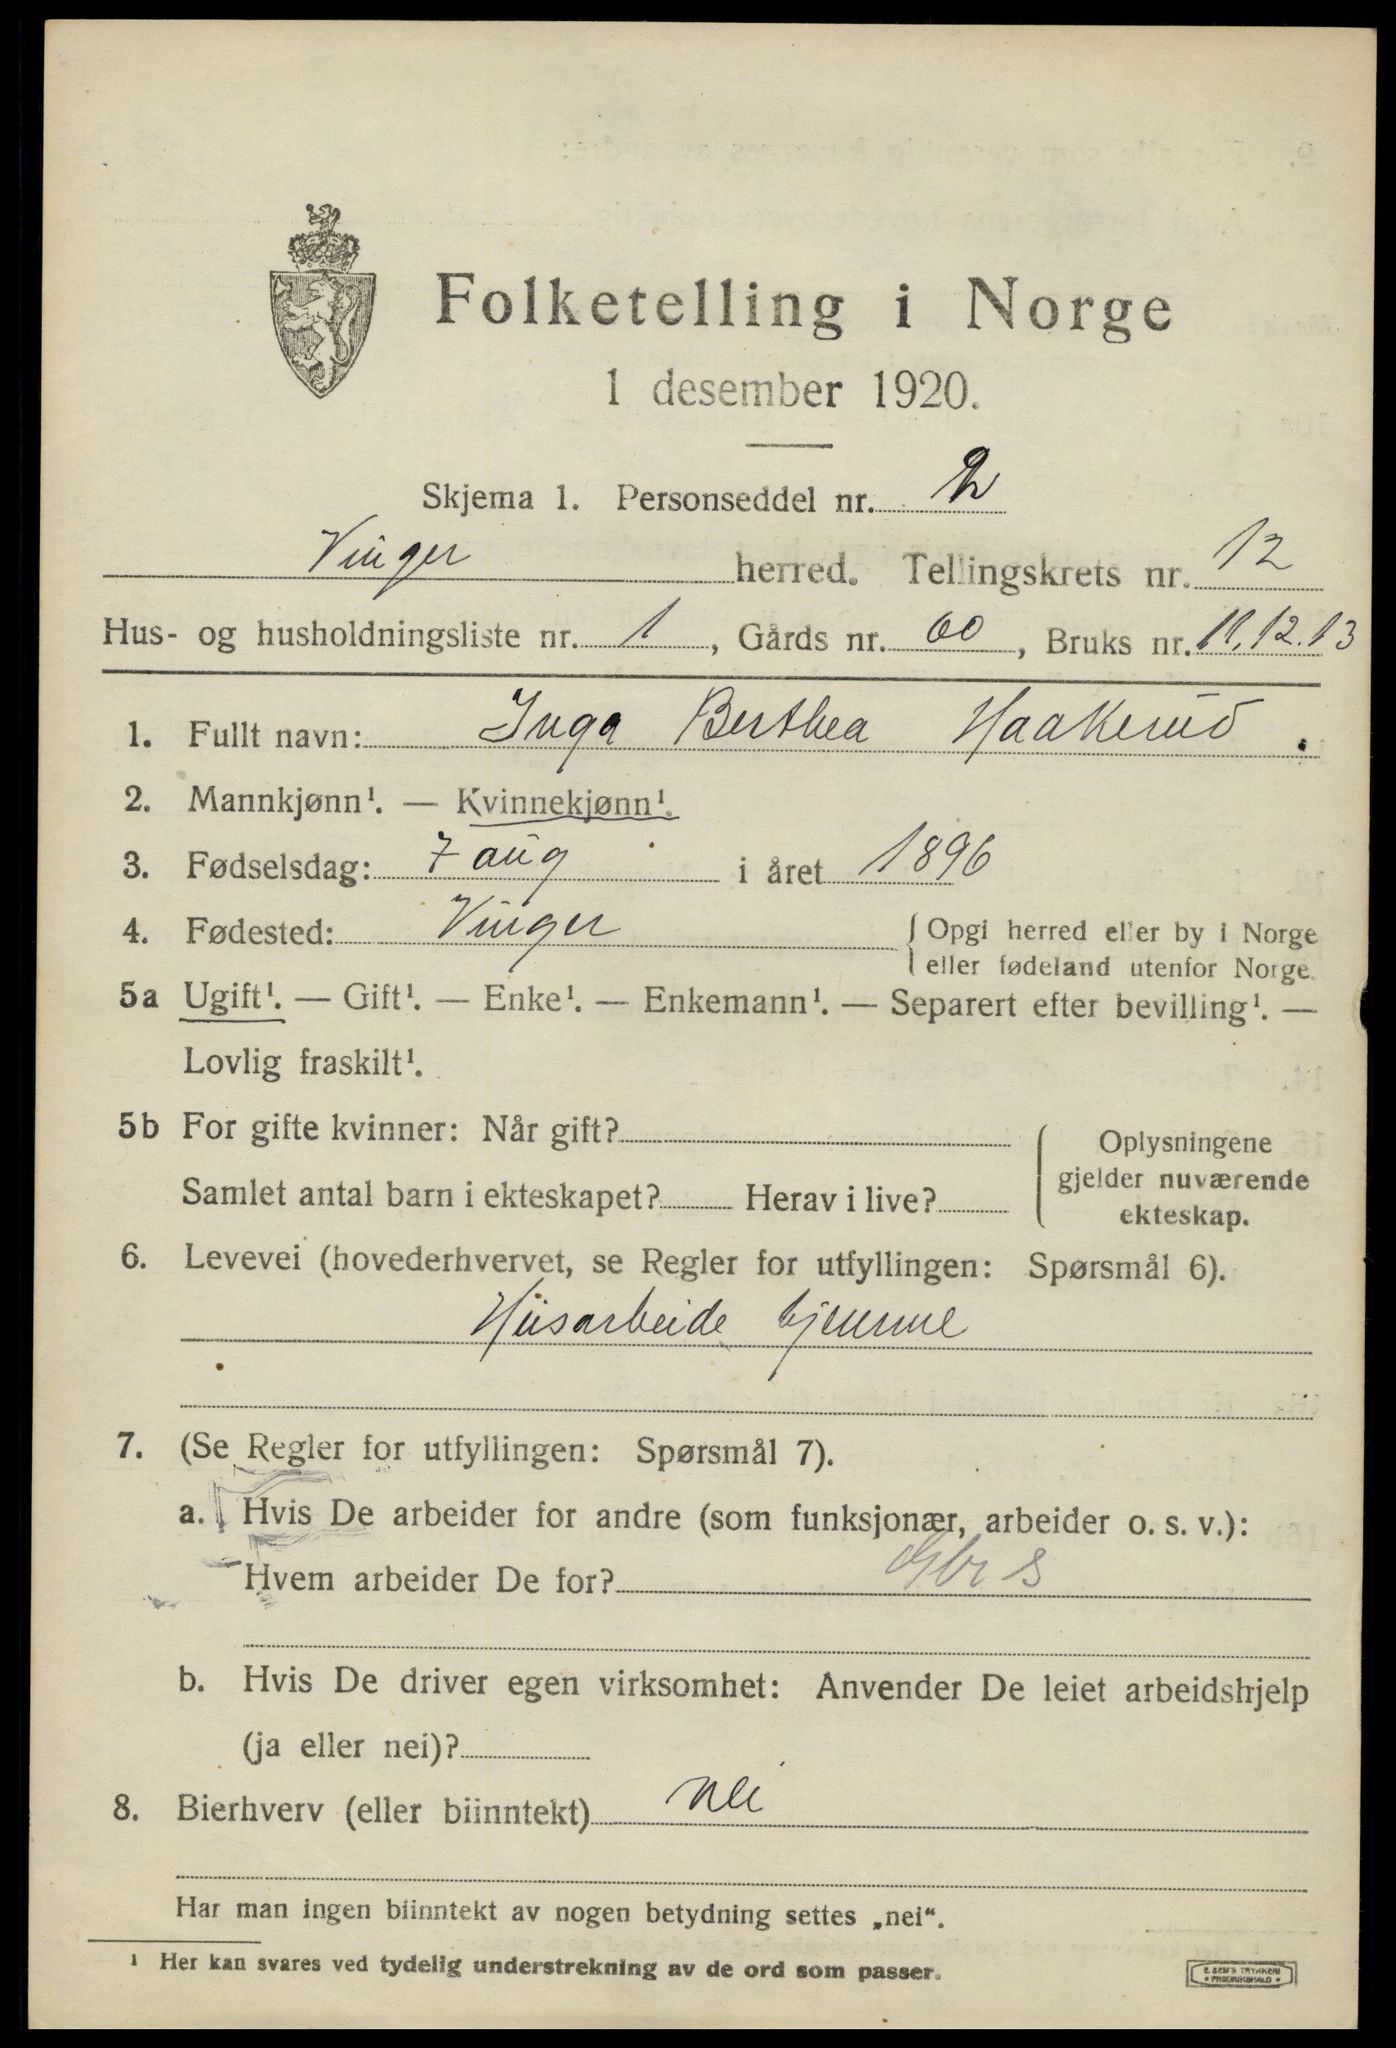 Folketelling i Norge
1 desember 1920.
Skjema 1. Personseddel nr. 2
Vinger herred. Tellingskrets nr. 12
Hus- og husholdningsliste nr. 1, Gårds nr. 60, Bruks nr. 11,12.13
1. Fullt navn: Inga Berthea Haakerud.
2. Mannkjønn¹. — Kvinnekjønn¹.
3. Fødselsdag: 7 aug i året 1896
4. Fødested: Vinger { Opgi herred eller by i Norge
eller fødeland utenfor Norge.
5a Ugift¹. — Gift¹. — Enke¹. — Enkemann¹. — Separert efter bevilling¹. —
Lovlig fraskilt¹.
5b For gifte kvinner: Når gift?
Samlet antal barn i ekteskapet? Herav i live?
Oplysningene
gjelder nuværende
ekteskap.
6. Levevei (hovederhvervet, se Regler for utfyllingen: Spørsmål 6).
Husarbeide hjemme
7. (Se Regler for utfyllingen: Spørsmål 7).
a. Hvis De arbeider for andre (som funksjonær, arbeider o. s. v.):
Hvem arbeider De for?
b. Hvis De driver egen virksomhet: Anvender De leiet arbeidshjelp
(ja eller nei)?
8. Bierhverv (eller biinntekt) nei
Har man ingen biinntekt av nogen betydning settes „nei“.
¹ Her kan svares ved tydelig understrekning av de ord som passer.
E. SEM'S TRYKKERI
FREDRIKSHALD